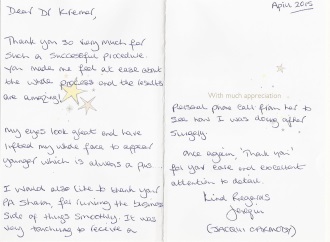 Dear Dr Kremer,
Thank you so very much for
such a successful procedure.
You made me feel at ease about
the whole process and the results
are amazing!
My eyes look great and have
lifted my whole face to appear
younger which is always a plus...
I would also like to thank your
PA Sharon, for running the business
side of things smoothly. It was
very touching to receive a
April 2015
With much appreciation
personal phone call from her to
see how I was doing after
surgery.
once again, 'Thank you'
for your care and excellent
attention to detail.
Kind Regards
Jacqui